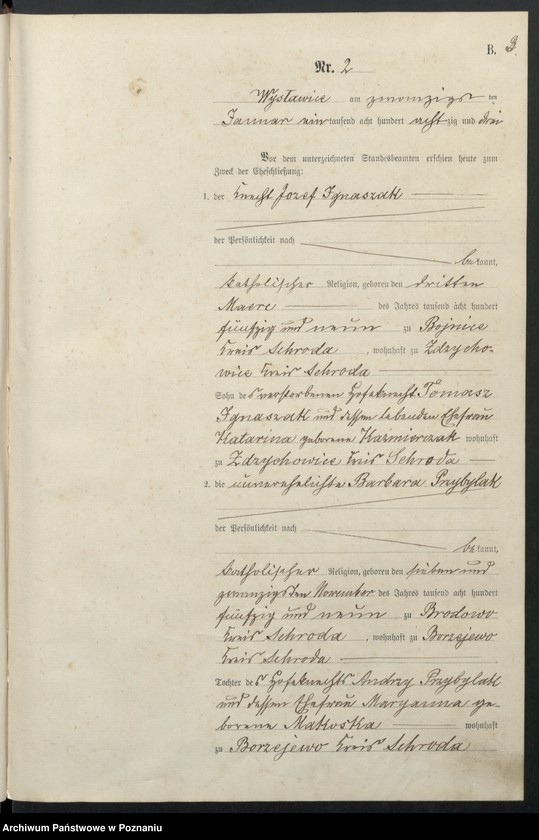 B. 3.
Nr. 2
Wysławice am zwanzigsten
Januar eintausend acht hundert achtzig und drei
Vor dem unterzeichneten Standesbeamten erschien heute zum
Zweck der Eheschließung:
1. der Knecht Jozef Ignaszak
der Persönlichkeit nach
bekannt,
katholischer Religion, geboren den dritten
Maerz des Jahres tausend acht hundert
fünfzig und neun zu Bojnice
Kreis Schroda, wohnhaft zu Zdzycho-
wice Kreis Schroda
Sohn des verstorbenen Hofeknecht Tomasz
Ignaszak und dessen lebenden Ehefrau
Katarina geborene Kazmierczak wohnhaft
zu Zdzychowice Kreis Schroda
2. die unverehelichte Barbara Przybylak
der Persönlichkeit nach
bekannt,
katholischer Religion, geboren den sieben und
zwanzigsten November des Jahres tausend acht hundert
fünfzig und neun zu Brodowo
Kreis Schroda, wohnhaft zu Borzejewo
Kreis Schroda
Tochter des Hofeknechts Andrzy Przybylak
und dessen Ehefrau Maryanna ge-
borene Makoska wohnhaft
zu Borzejewo Kreis Schroda
Archiwum Państwowe w Poznaniu